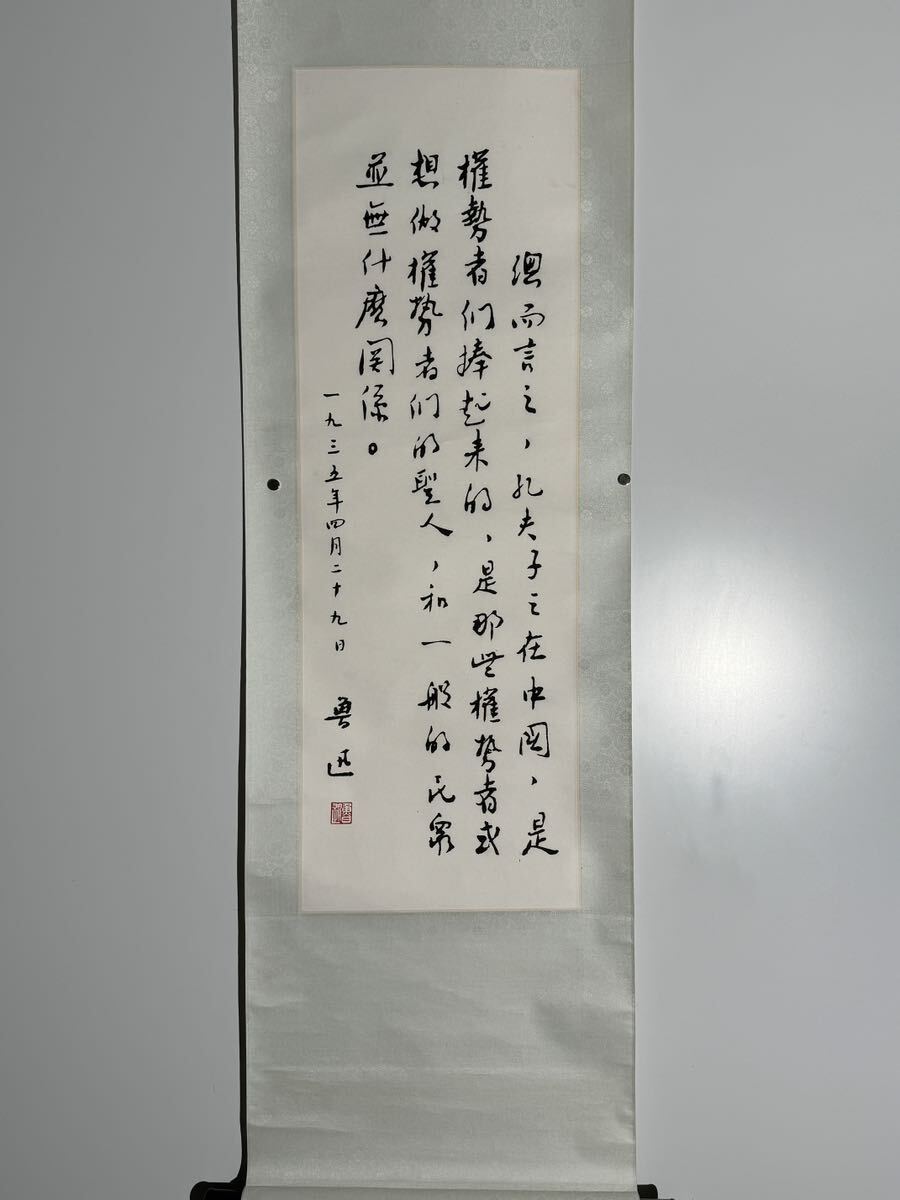 總而言之，孔夫子之在中國，是
權勢者们捧起来的，是那些權势者或
想做權势者们的聖人，和一般的民衆
並無什麽関係。
一九三五年四月二十九日
魯迅
魯迅